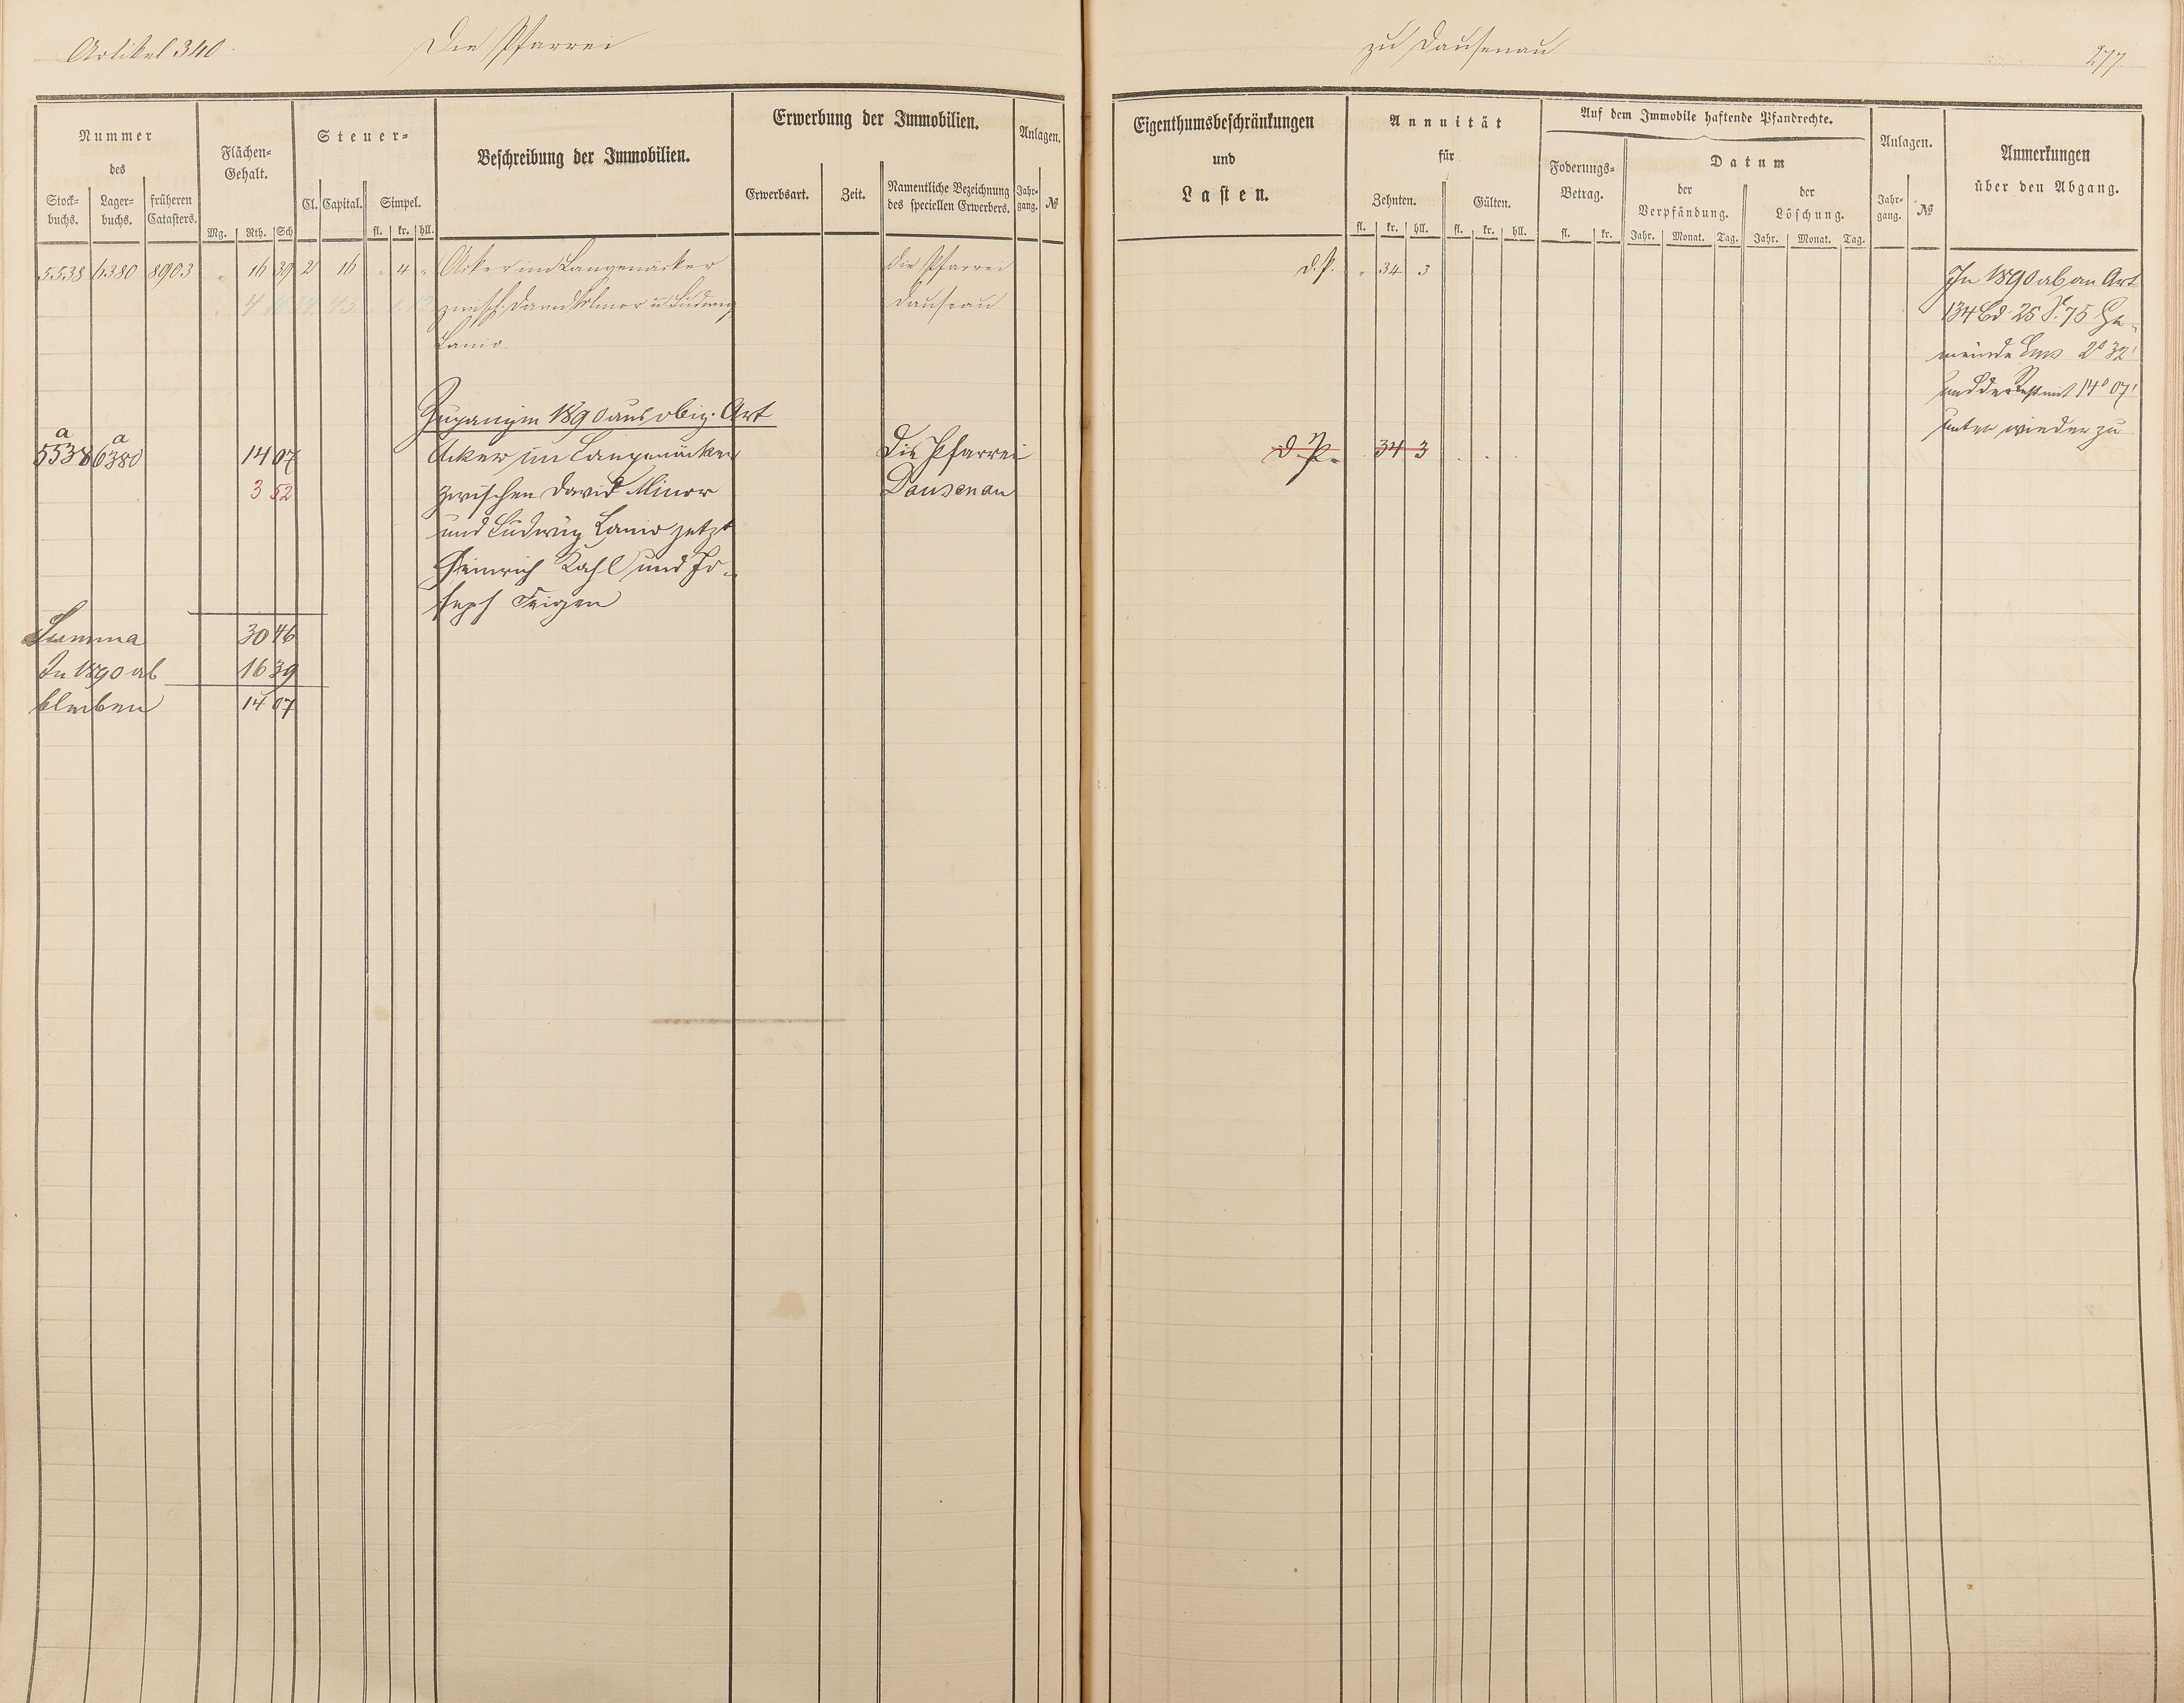 Artikel 340
Die Pfarrei
zu Dausenau
277
Nummer
des
Stock-
buchs.
Lager-
buchs.
früheren
Catasters.
Flächen-
Gehalt.
Mg. Rth. Sch
Steuer-
Cl. Capital. Simpel.
fl. kr. hll.
Beschreibung der Immobilien.
Erwerbung der Immobilien.
Erwerbsart. Zeit.
Namentliche Bezeichnung
des speciellen Erwerbers.
Anlagen.
Jahr-
gang.
№
Eigenthumsbeschränkungen
und
Lasten.
Annuität
für
Zehnten. Gülten.
fl. kr. hll. fl. kr. hll.
Auf dem Immobile haftende Pfandrechte.
Foderungs-
Betrag.
fl. kr.
Datum
der
Verpfändung.
der
Löschung.
Jahr. Monat. Tag. Jahr. Monat. Tag.
Anlagen.
Jahr-
gang.
№
Anmerkungen
über den Abgang.
5538 6380 8903 " 16 39 2 16 " 4 " Acker im Langenäcker die Pfarrei d. P. " 34 3
zwisch. David Minor u. Ludwig Dausenau
Lanio
In 1890 ab an Art
134 Bd 25 S. 75 Ge-
meinde Ems 2° 32'
und der Rest mit 14° 07'
unten wieder zu
Zugang in 1890 aus obig. Art
a a
5538 6380 14 07 Acker im Langenäcker Die Pfarrei d. P. 34 3
3 52 zwischen David Minor Dausenau
und Ludwig Lanio jetzt
Heinrich Kahl und Jo-
seph Feigen
Summa 30 46
In 1890 ab 16 39
bleiben 14 07